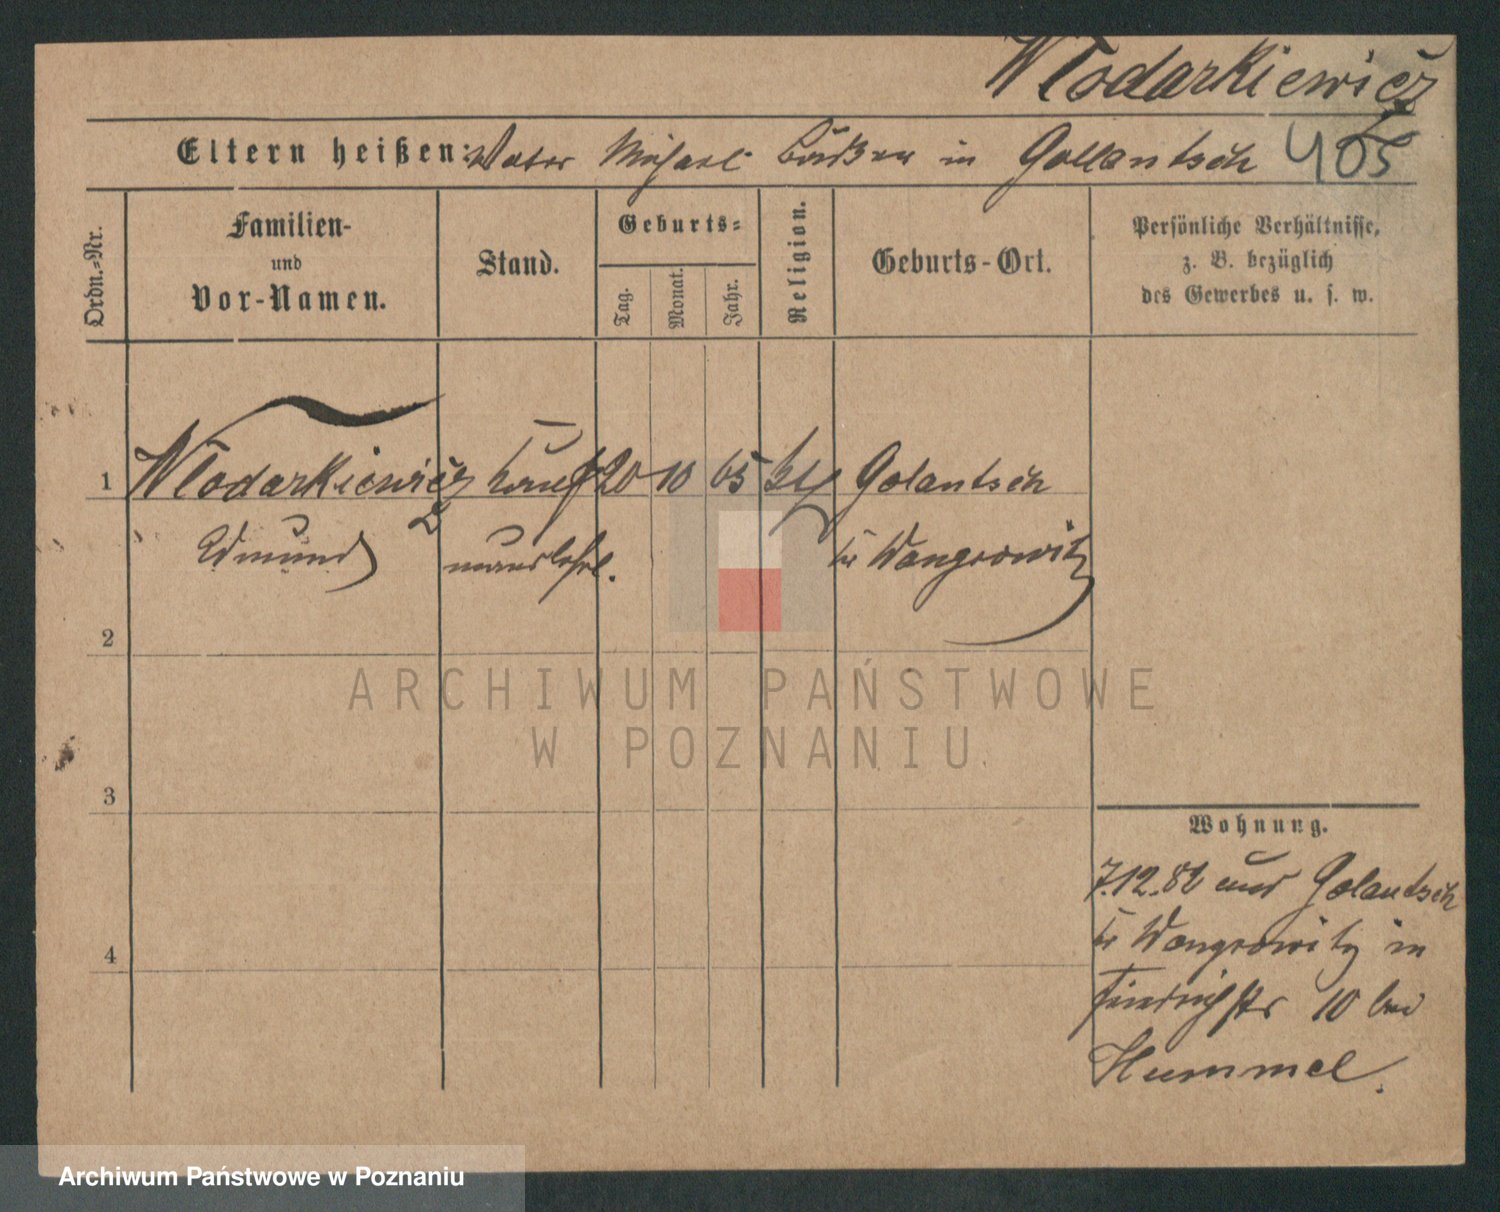 Wlodarkiewicz
Eltern heißen: Vater Michael in Gollantsch 405
Ordn.-Nr.
Familien-
und
Vor-Namen.
Stand.
Geburts-
Tag.
Monat.
Jahr.
Religion.
Geburts-Ort.
Persönliche Verhältnisse,
z. B. bezüglich
des Gewerbes u. s. w.
1 Wlodarkiewicz Kauf 20 10 65 kth Golantsch
Edmund mannslehrl. Kr Wongrowitz
2
3
4
Wohnung.
7.12.82 aus Golantsch
Kr Wongrowitz in
Friedrichstr 10 bei
Hummel.
ARCHIWUM PAŃSTWOWE
W POZNANIU
Archiwum Państwowe w Poznaniu